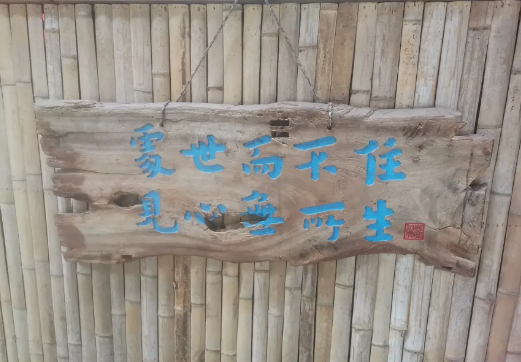 處世而不住
見心無所生